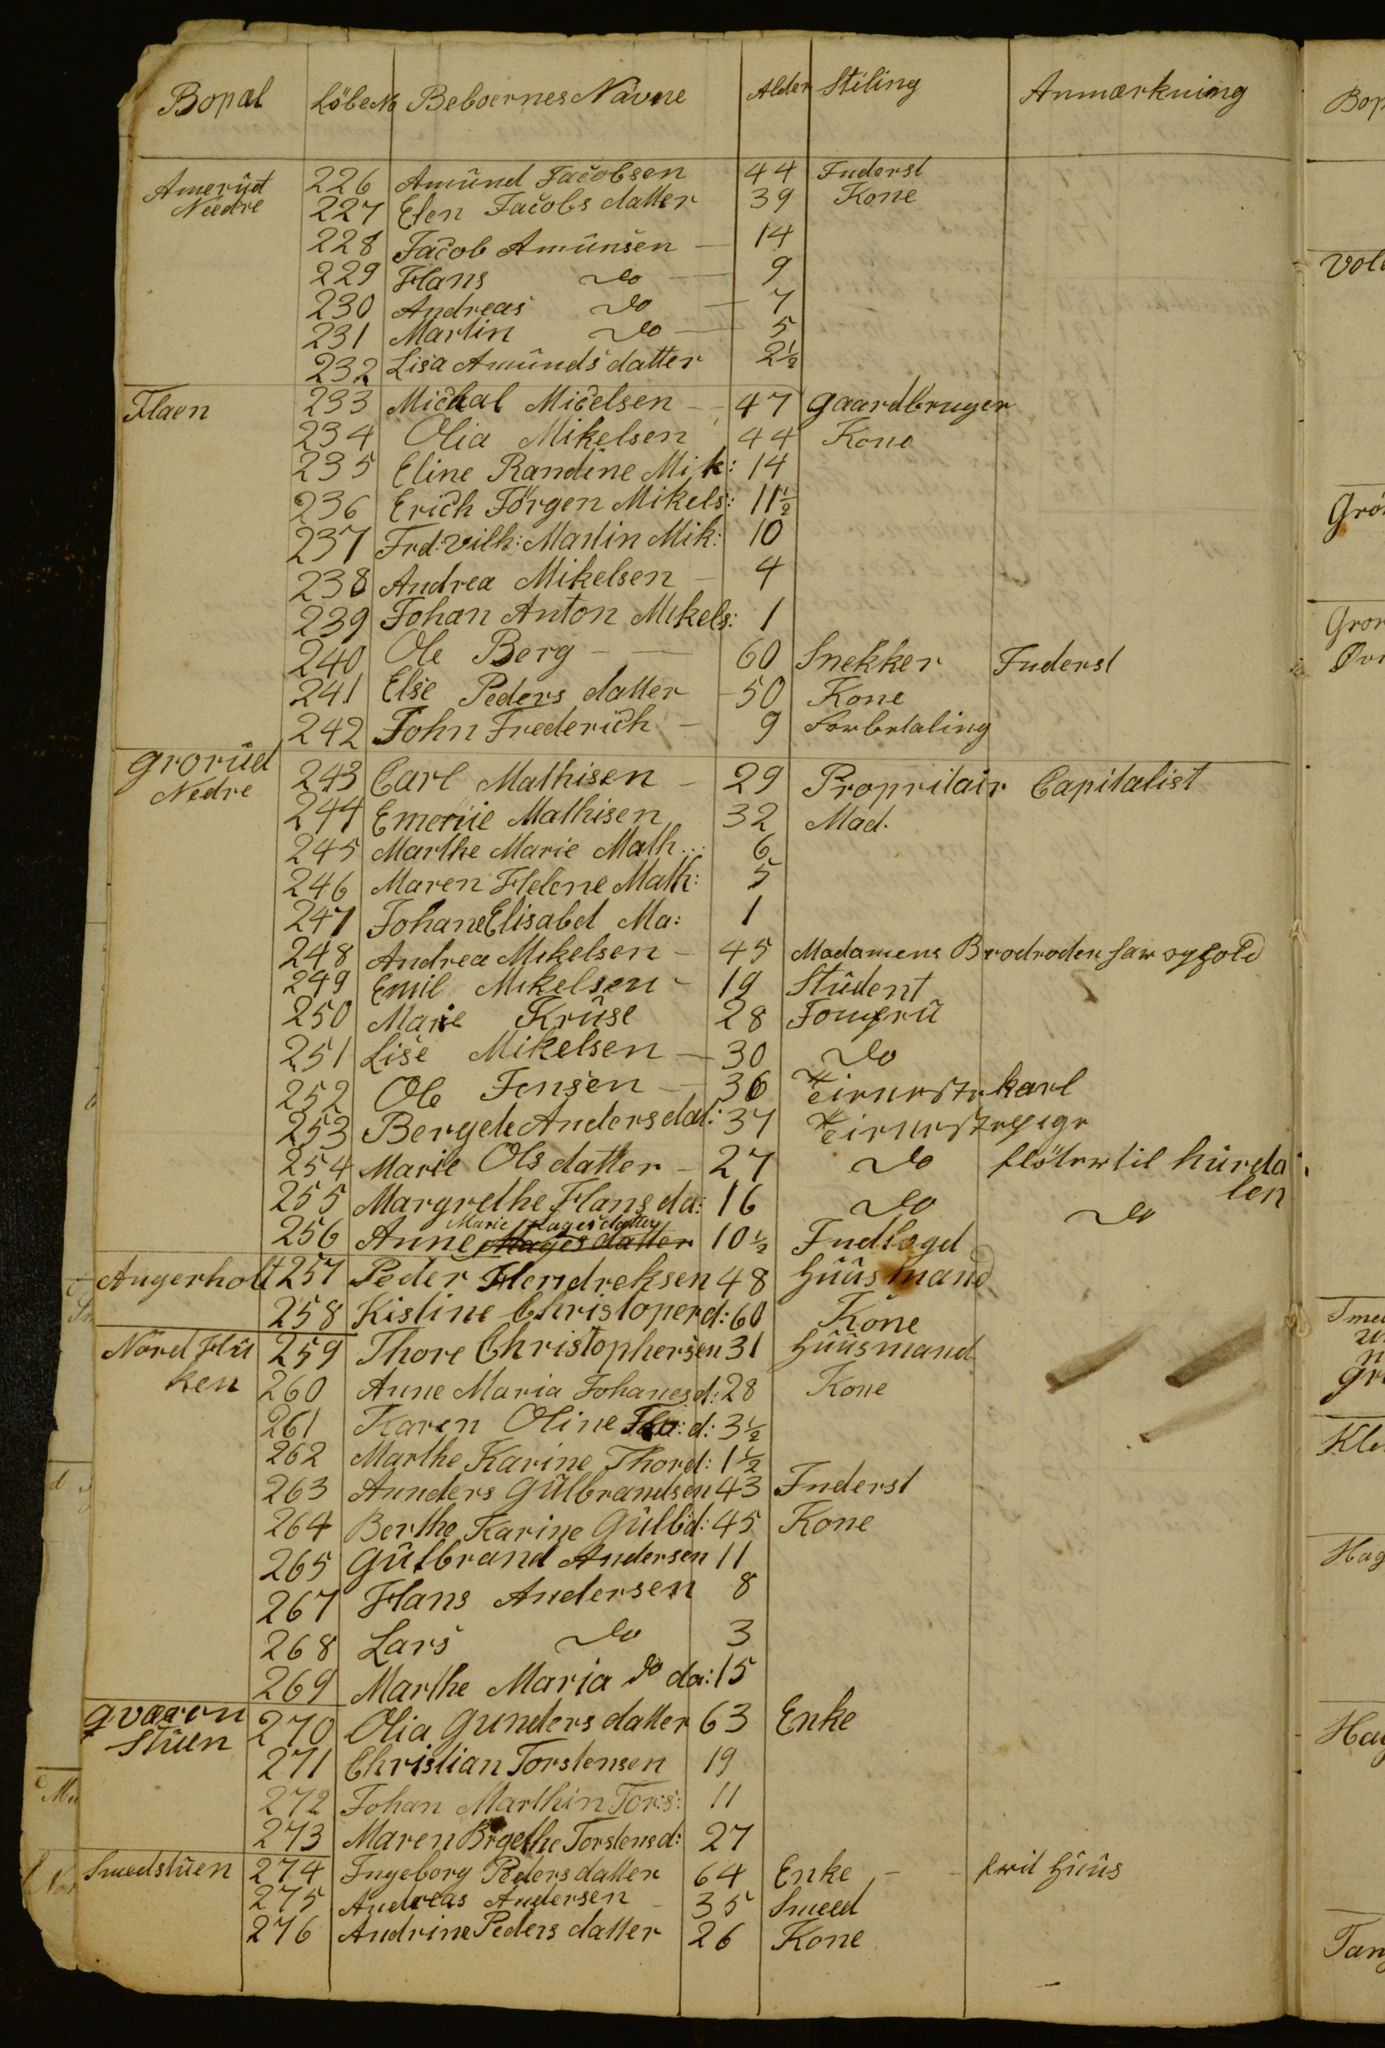 Bopæl LöbeNo Beboernes Navne Alder Stiling Anmærkning
Amerüd 226 Amünd Jacobsen 44 Inderst
Needre 227 Elen Jacobs datter 39 Kone
228 Jacob Amünsen — 14
229 Hans do — 9
230 Andreas do — 7
231 Martin do — 5
232 Lisa Amünds datter 2½
Flaen 233 Michal Micelsen — 47 Gaardbruger
234 Olia Mikelsen 44 Kone
235 Eline Randine Mik: 14
236 Erich Jörgen Mikels: 11½
237 Frd: Vilh: Martin Mik: 10
238 Andrea Mikelsen — 4
239 Johan Anton Mikels: 1
240 Ole Berg — 60 Snekker Inderst
241 Else Peders datter — 50 Kone
242 John Frederich — 9 Forbetaling
Grorüd 243 Carl Mathisen — 29 Propritair Capitalist
Nedre
244 Emerüe Mathisen 32 Mad.
245 Marthe Marie Math..: 6
246 Maren Helene Math: 5
247 Johane Elisabet Ma: 1
248 Andrea Mikelsen — 45 Madamens
249 Emil Mikelsen — 19 Stüdent
250 Marie Krüse 28 Jomfrü
251 Lise Mikelsen — 30 do
252 Ole Jensen — 36 Tienestekarl
253 Bergete Andersdat: 37 Tienestepige
254 Marie Olsdatter — 27 do fløter til Hürda
len
255 Margrethe Hans da: 16 do do
Marie Hages datter
256 Anne Hages datter 10½ Indlagd
Augerholt 257 Peder Hendreksen 48 Hüüsmand
258 Kistine Christoperd: 60 Kone
Nord Hü 259 Thore Christophersen 31 Hüüsmand
ken 260 Anne Maria Johanesd: 28 Kone
261 Karen Oline Tho: d: 3½
262 Marthe Karine Thord: 1½
263 Annders Gülbrandsen 43 Inderst
264 Berthe Karine Gülbd: 45 Kone
265 Gülbrand Andersen 11
267 Hans Andersen 8
268 Lars do 3
269 Marthe Maria do da: 15
Qvæern 270 Olia Gunders datter 63 Enke
Stüen
271 Christian Torstensen 19
272 Johan Marthin Tors: 11
273 Maren Brgethe Torstensd: 27
Smedstüen 274 Ingeborg Peders datter 64 Enke — frit Hüüs
275 Andreas Andersen 35 Smeed
276 Andrine Peders datter 26 Kone
Bop
Vol
Grø
Gror
Kle
Hag
Hag
Tan